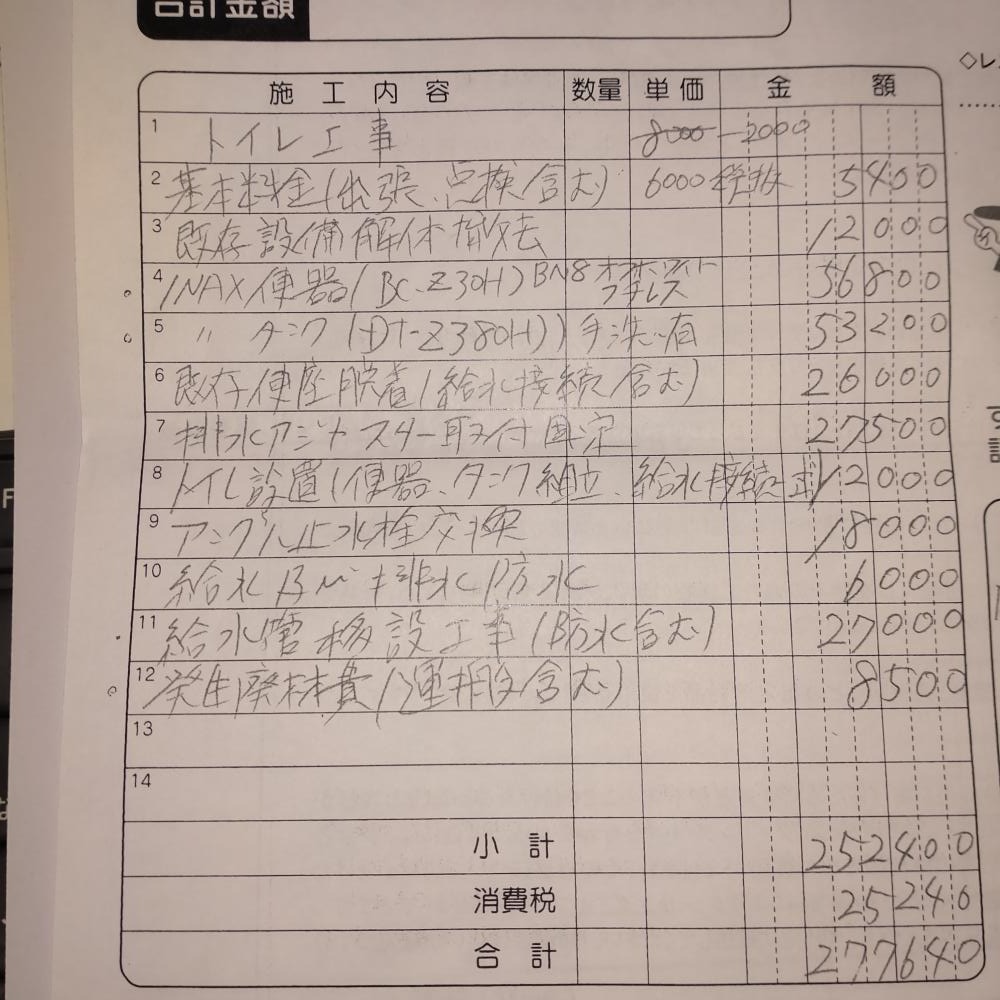 合計金額
施工内容 数量 単価 金額
1 トイレ工事 8000 -2000
2 基本料金(出張、点検含む) 6000 税抜 5400
3 既存設備解体撤去 12000
4 INAX便器(BC-Z30H) BN8 オフホワイト 56800
5 〃 タンク(DT-Z380H)) 手洗い有 53200
6 既存便座脱着(給水接続含む) 26000
7 排水アジャスター取付固定 27500
8 トイレ設置(便器、タンク組立、給水接続 12000
9 アングル止水栓交換 18000
10 給水及び排水防水 6000
11 給水管移設工事(防水含む) 27000
12 発生廃材費(運搬含む) 8500
13
14
小計 252400
消費税 25240
合計 277640